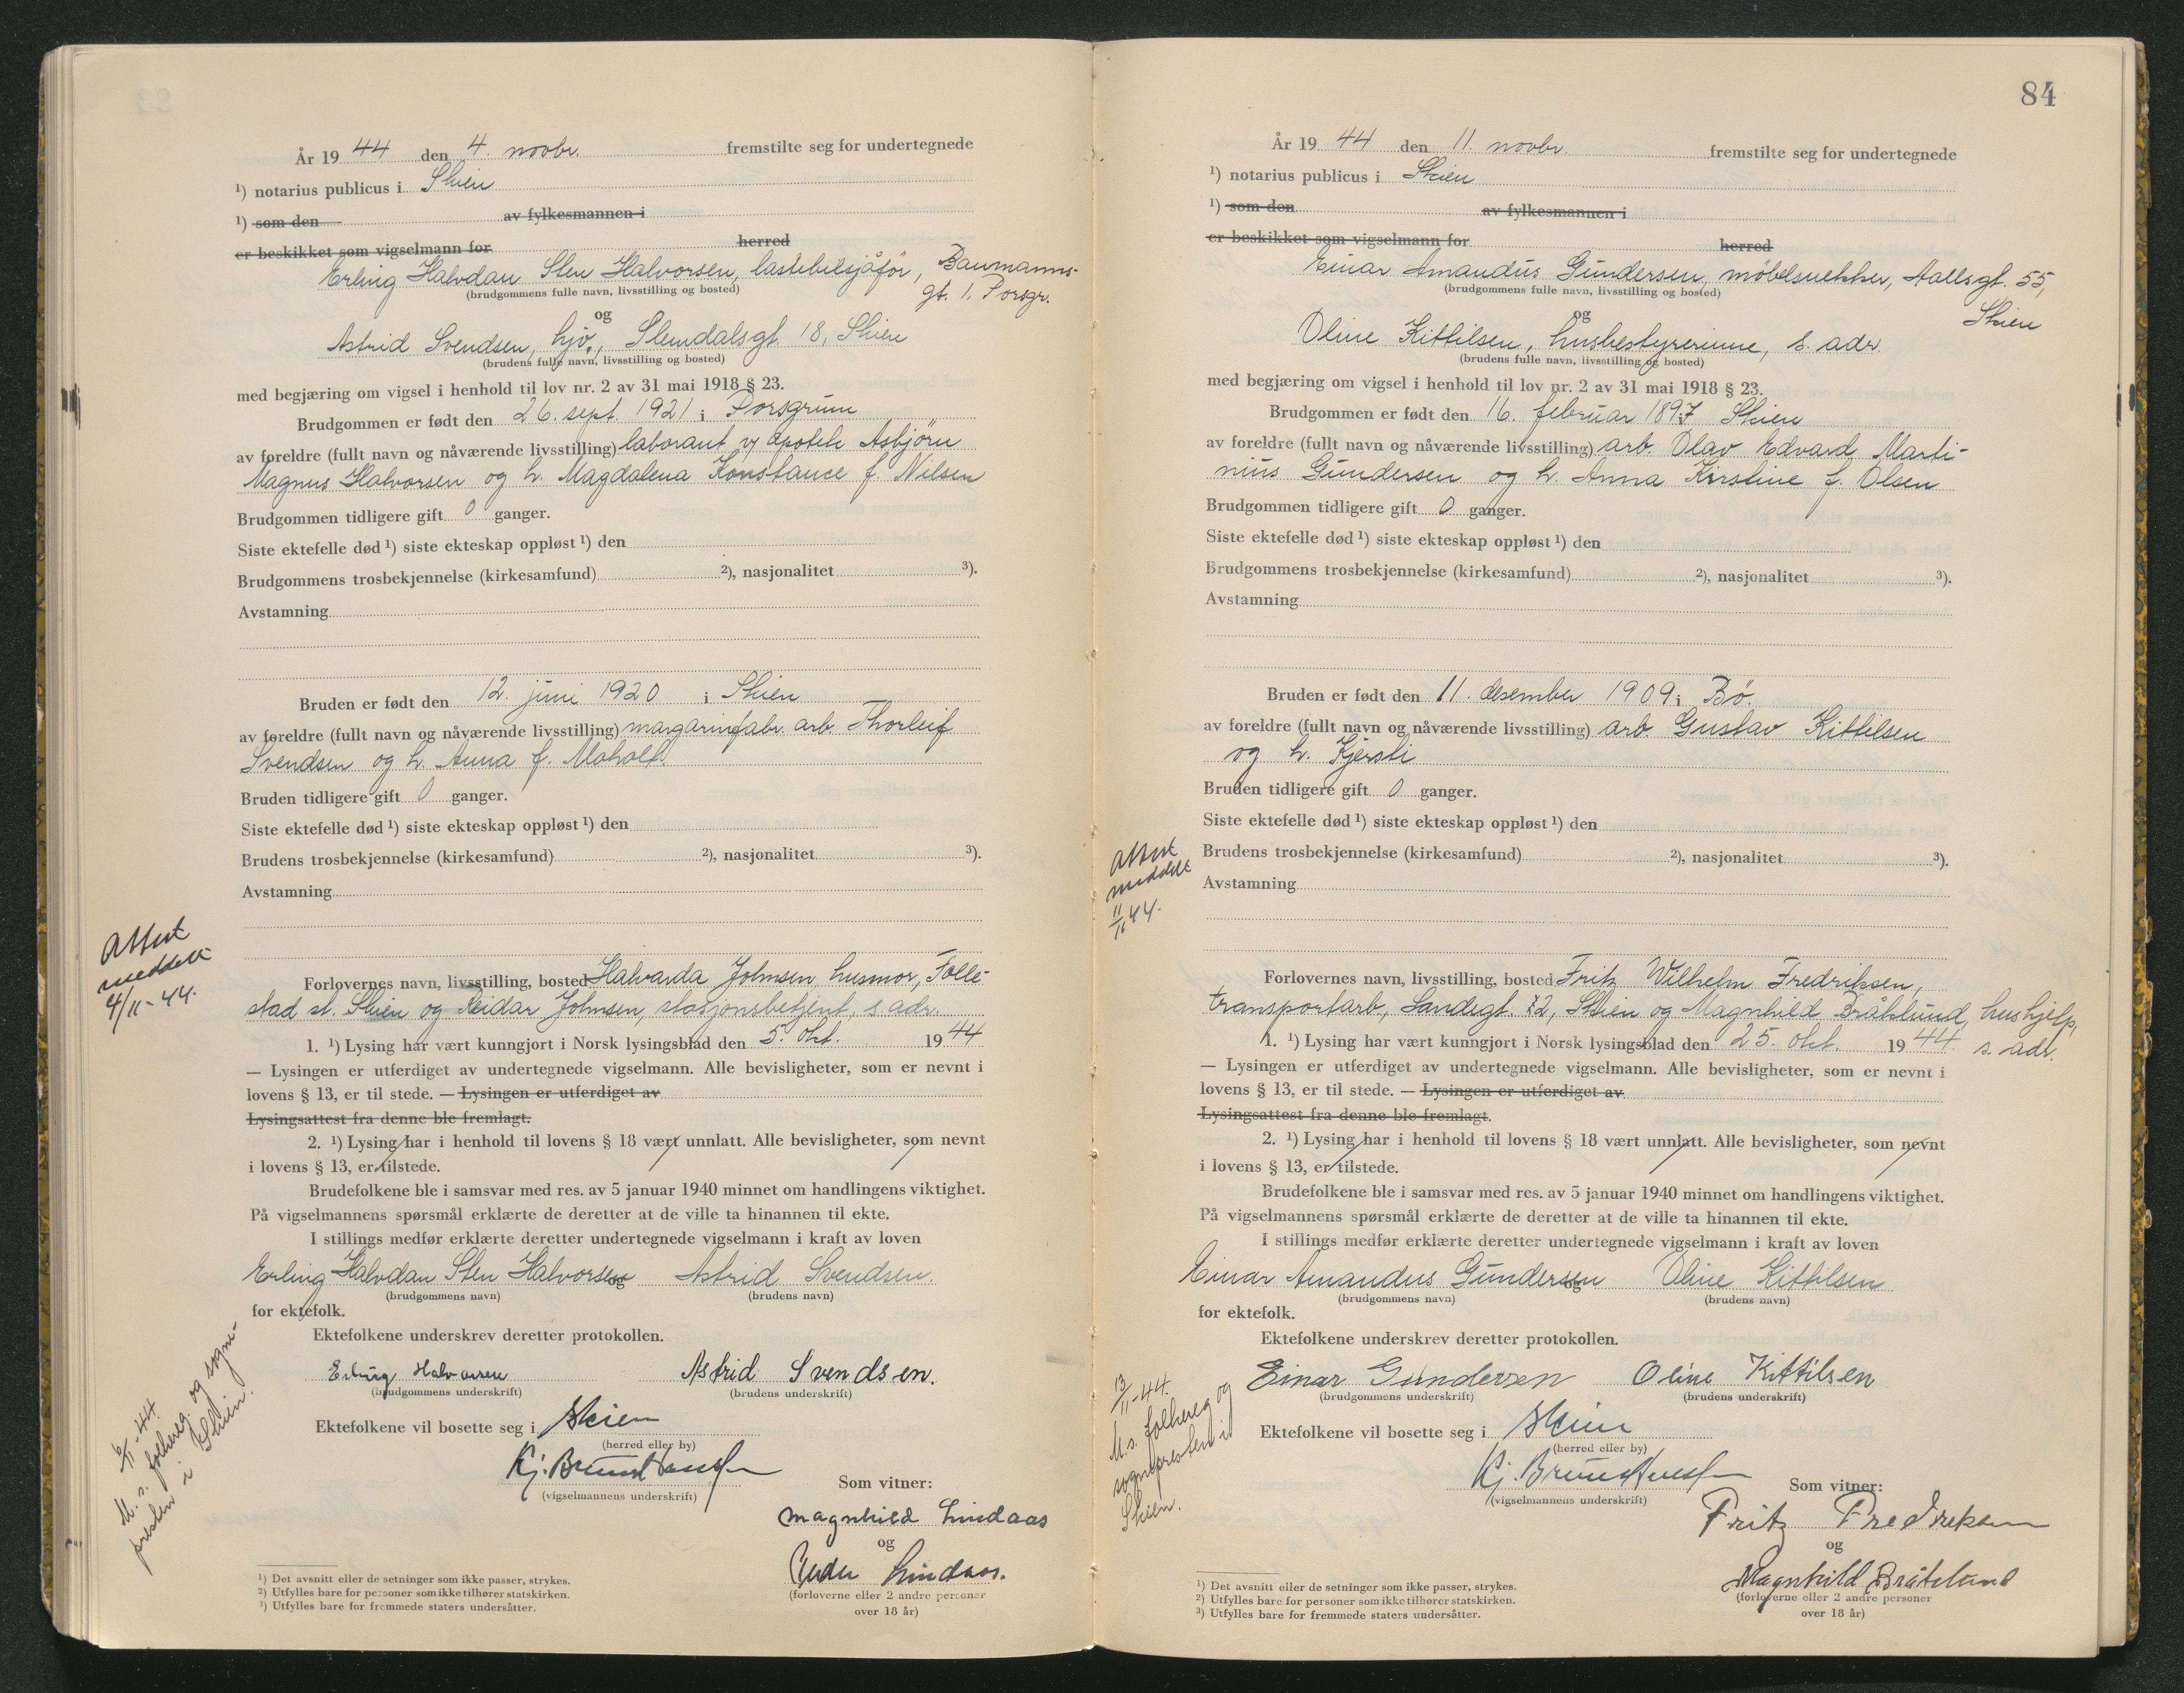 År 19 44 den 4. novbr. fremstilte seg for undertegnede
¹) notarius publicus i Skien
¹) som den av fylkesmannen i
er beskikket som vigselmann for herred
Erling Halvdan Sten Halvorsen, lastebilsjåför, Baumanns-
gt. 1, Porsgr.
(brudgommens fulle navn, livsstilling og bosted)
og
Astrid Svendsen, hjv., Slemdalsgt. 18, Skien
(brudens fulle navn, livsstilling og bosted)
med begjæring om vigsel i henhold til lov nr. 2 av 31 mai 1918 § 23.
Brudgommen er født den 26. sept. 1921 i Porsgrunn
av foreldre (fullt navn og nåværende livsstilling) laborant v/ apotek Asbjörn
Magnus Halvorsen og h. Magdalena Konstance f. Nilsen
Brudgommen tidligere gift 0 ganger.
Siste ektefelle død ¹) siste ekteskap oppløst ¹) den
Brudgommens trosbekjennelse (kirkesamfund) ²), nasjonalitet ³).
Avstamning
Bruden er født den 12. juni 1920 i Skien
av foreldre (fullt navn og nåværende livsstilling) margarinfabr. arb. Thorleif
Svendsen og h. Anna f. Moholt.
Bruden tidligere gift 0 ganger.
Siste ektefelle død ¹) siste ekteskap oppløst ¹) den
Brudens trosbekjennelse (kirkesamfund) ²), nasjonalitet ³).
Avstamning
Attest
meddelt
4/11-44.
Forlovernes navn, livsstilling, bosted Halvarda Johnsen, husmor, Folle-
stad st. Skien og Reidar Johnsen, stasjonsbetjent, s. adr.
1. ¹) Lysing har vært kunngjort i Norsk lysingsblad den 5. okt. 19 44
— Lysingen er utferdiget av undertegnede vigselmann. Alle bevisligheter, som er nevnt i
lovens § 13, er til stede. — Lysingen er utferdiget av
Lysingsattest fra denne ble fremlagt.
2. ¹) Lysing har i henhold til lovens § 18 vært unnlatt. Alle bevisligheter, som nevnt
i lovens § 13, er tilstede.
Brudefolkene ble i samsvar med res. av 5 januar 1940 minnet om handlingens viktighet.
På vigselmannens spørsmål erklærte de deretter at de ville ta hinannen til ekte.
I stillings medfør erklærte deretter undertegnede vigselmann i kraft av loven
Erling Halvdan Sten Halvorsen og Astrid Svendsen.
(brudgommens navn) (brudens navn)
for ektefolk.
Ektefolkene underskrev deretter protokollen.
Erling Halvorsen Astrid Svendsen.
(brudgommens underskrift) (brudens underskrift)
Ektefolkene vil bosette seg i Skien
(herred eller by)
6/11-44.
M. s. folkereg. og sogne-
presten i Skien.
(vigselmannens underskrift)
Som vitner:
Magnhild Lindaas
og
Peder Lindaas.
(forloverne eller 2 andre personer
over 18 år)
¹) Det avsnitt eller de setninger som ikke passer, strykes.
²) Utfylles bare for personer som ikke tilhører statskirken.
³) Utfylles bare for fremmede staters undersåtter.
84
År 19 44 den 11. novbr. fremstilte seg for undertegnede
¹) notarius publicus i Skien
¹) som den av fylkesmannen i
er beskikket som vigselmann for herred
Einar Amandus Gundersen, möbelsnekker, Aallsgt. 55,
Skien
(brudgommens fulle navn, livsstilling og bosted)
og
Oline Kittilsen, husbestyrerinne, s. adr.
(brudens fulle navn, livsstilling og bosted)
med begjæring om vigsel i henhold til lov nr. 2 av 31 mai 1918 § 23.
Brudgommen er født den 16. februar 1897 Skien
av foreldre (fullt navn og nåværende livsstilling) arb. Olav Edvard Marti-
nius Gundersen og h. Anna Kirstine f. Olsen
Brudgommen tidligere gift 0 ganger.
Siste ektefelle død ¹) siste ekteskap oppløst ¹) den
Brudgommens trosbekjennelse (kirkesamfund) ²), nasjonalitet ³).
Avstamning
Bruden er født den 11. desember 1909 i Bö.
av foreldre (fullt navn og nåværende livsstilling) arb. Gustav Kittilsen
og h. Kjersti
Bruden tidligere gift 0 ganger.
Siste ektefelle død ¹) siste ekteskap oppløst ¹) den
Brudens trosbekjennelse (kirkesamfund) ²), nasjonalitet ³).
Avstamning
Attest
meddelt
11/11 44.
Forlovernes navn, livsstilling, bosted Fritz Wilhelm Fredriksen,
transportarb., Landegt. 72, Skien og Magnhild Bråtelund, hushjelp,
s. adr.
1. ¹) Lysing har vært kunngjort i Norsk lysingsblad den 25. okt. 19 44.
— Lysingen er utferdiget av undertegnede vigselmann. Alle bevisligheter, som er nevnt i
lovens § 13, er til stede. — Lysingen er utferdiget av
Lysingsattest fra denne ble fremlagt.
2. ¹) Lysing har i henhold til lovens § 18 vært unnlatt. Alle bevisligheter, som nevnt
i lovens § 13, er tilstede.
Brudefolkene ble i samsvar med res. av 5 januar 1940 minnet om handlingens viktighet.
På vigselmannens spørsmål erklærte de deretter at de ville ta hinannen til ekte.
I stillings medfør erklærte deretter undertegnede vigselmann i kraft av loven
Einar Amandus Gundersen og Oline Kittilsen
(brudgommens navn) (brudens navn)
for ektefolk.
Ektefolkene underskrev deretter protokollen.
Einar Gundersen Oline Kittilsen
(brudgommens underskrift) (brudens underskrift)
Ektefolkene vil bosette seg i Skien
(herred eller by)
13/11-44.
M. s. folkereg. og
sognepresten i
Skien.
(vigselmannens underskrift)
Som vitner:
Fritz Fredriksen
og
Magnhild Bråtelund
(forloverne eller 2 andre personer
over 18 år)
¹) Det avsnitt eller de setninger som ikke passer, strykes.
²) Utfylles bare for personer som ikke tilhører statskirken.
³) Utfylles bare for fremmede staters undersåtter.